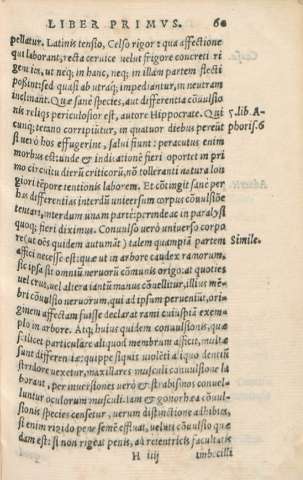 LIBER PRIMVS. 60
pellatur. Latinis tensio, Celso rigor: qua affectione
qui laborant, recta ceruice velut frigore concreti ri
gent ita, ut neq; in hanc, neq; in illam partem flecti
possint: sed quasi ab utraq; impediantur, in neutram
inclinant. Quæ sanè species, aut differentia cõuulsio
nis reliqs periculosior est, autore Hippocrate. Qui
5. lib. A-
cunq; tetano corripiũtur, in quatuor diebus pereũt
phoris. 6
si verò hos effugerint, salui fiunt: peracutus enim
morbus est: unde & indicationẽ fieri oportet in pri
mo circuitu dierũ criticorũ, nõ tolleranti natura lon
giori tẽpore tentionis laborem. Et cõtingit sanè per
has differentias interdũ uniuersum corpus cõuulsiõe
tentari, interdum unam partẽ: perinde ac in paralysi
quoq; fieri diximus. Conuulso verò vniuerso corpo
re (ut oẽs quidem autumãt) talem quampiã partem
Simile.
affici necesse est: quæ ut in arbore caudex ramorum,
sic ipsa sit omniũ neruorũ cõmunis origo: at quoties
vel crus, vel altera iantũ manus cõuellitur, illius mẽ-
bri cõuulsio neruorum, qui ad ipsum perueniũt, ori-
ginem affectam fuisse declarat rami cuiuspiã exem-
plo in arbore. Atq; huius quidem conuulsionis, quæ
scilicet particulare aliquod membrum afficit, multæ
sunt differentiæ: quippe siquis violẽti aliquo dentiũ
stridore vexetur, maxillares musculi conuulsione la
borant, per inuersiones verò & strabismos conuel-
luntur oculorum musculi. Iam & gonorhœa cõuul-
sionis species censetur, verum distinctione adhibita,
si enim rigido pene semẽ effluat, veluti cõuulsio quæ
dam est: si non rigeat penis, ad retentricis facultatis
H iiij imbecilli